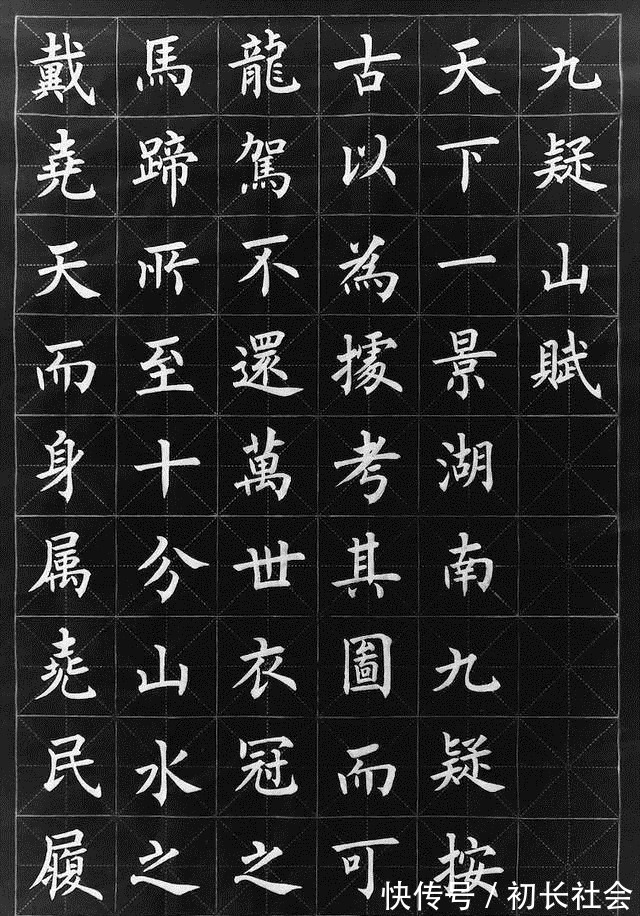 九疑山賦
天下一景湖南九疑按
古以為據考其圖而可
龍駕不還萬世衣冠之
馬蹄所至十分山水之
戴堯天而身属堯民履
快传号/初长社会